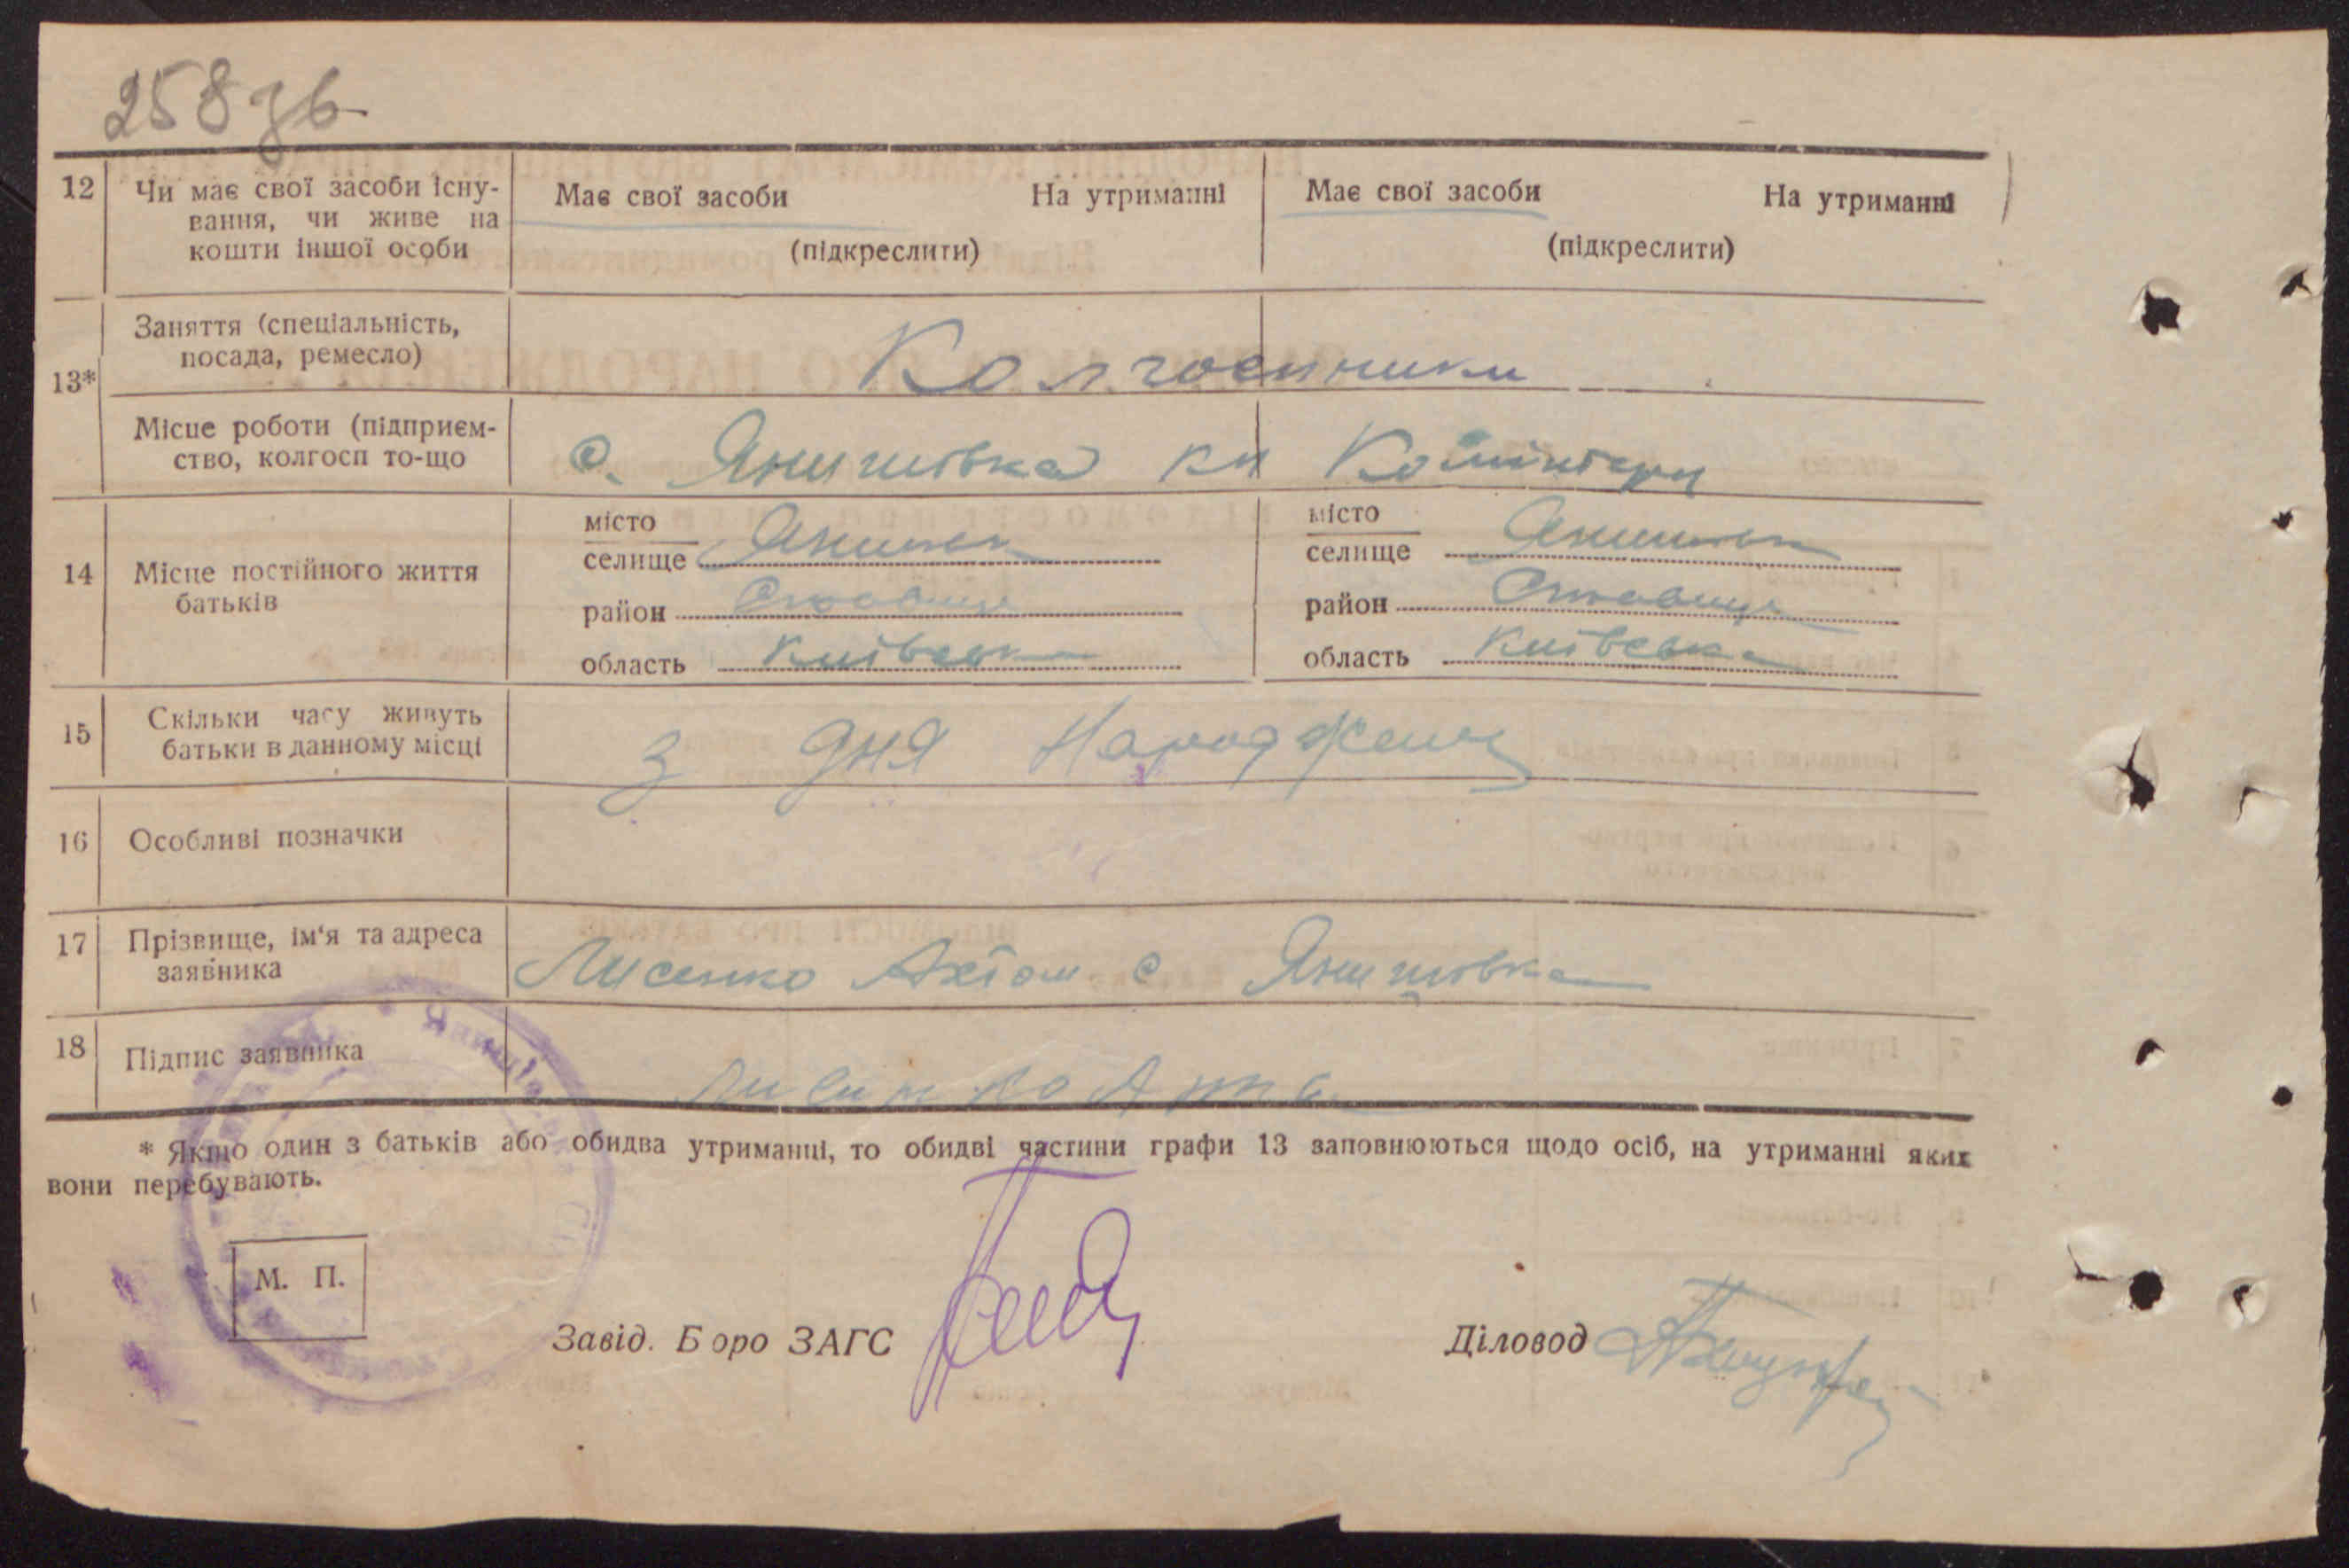 258 зв
12 Чи має свої засоби існу-
вання, чи живе на
кошти іншої особи
Має свої засоби На утриманні
(підкреслити)
Має свої засоби На утриманні
(підкреслити)
13*
Заняття (спеціальність,
посада, ремесло)
Колгоспники
Місце роботи (підприєм-
ство, колгосп то-що
с. Янишівка км Комінтерн
14 Місце постійного життя
батьків
місто
селище
район Ставище
область Київська
місто
селище
район Ставище
область Київська
15 Скільки часу живуть
батьки в данному місці
з дня Народження
16 Особливі позначки
17 Прізвище, ім'я та адреса
заявника
Лисенко с Янишівка
18 Підпис заявника
* Якщо один з батьків або обидва утриманці, то обидві частини графи 13 заповнюються щодо осіб, на утриманні яких
вони перебувають.
М. П.
Завід. Бюро ЗАГС
Діловод